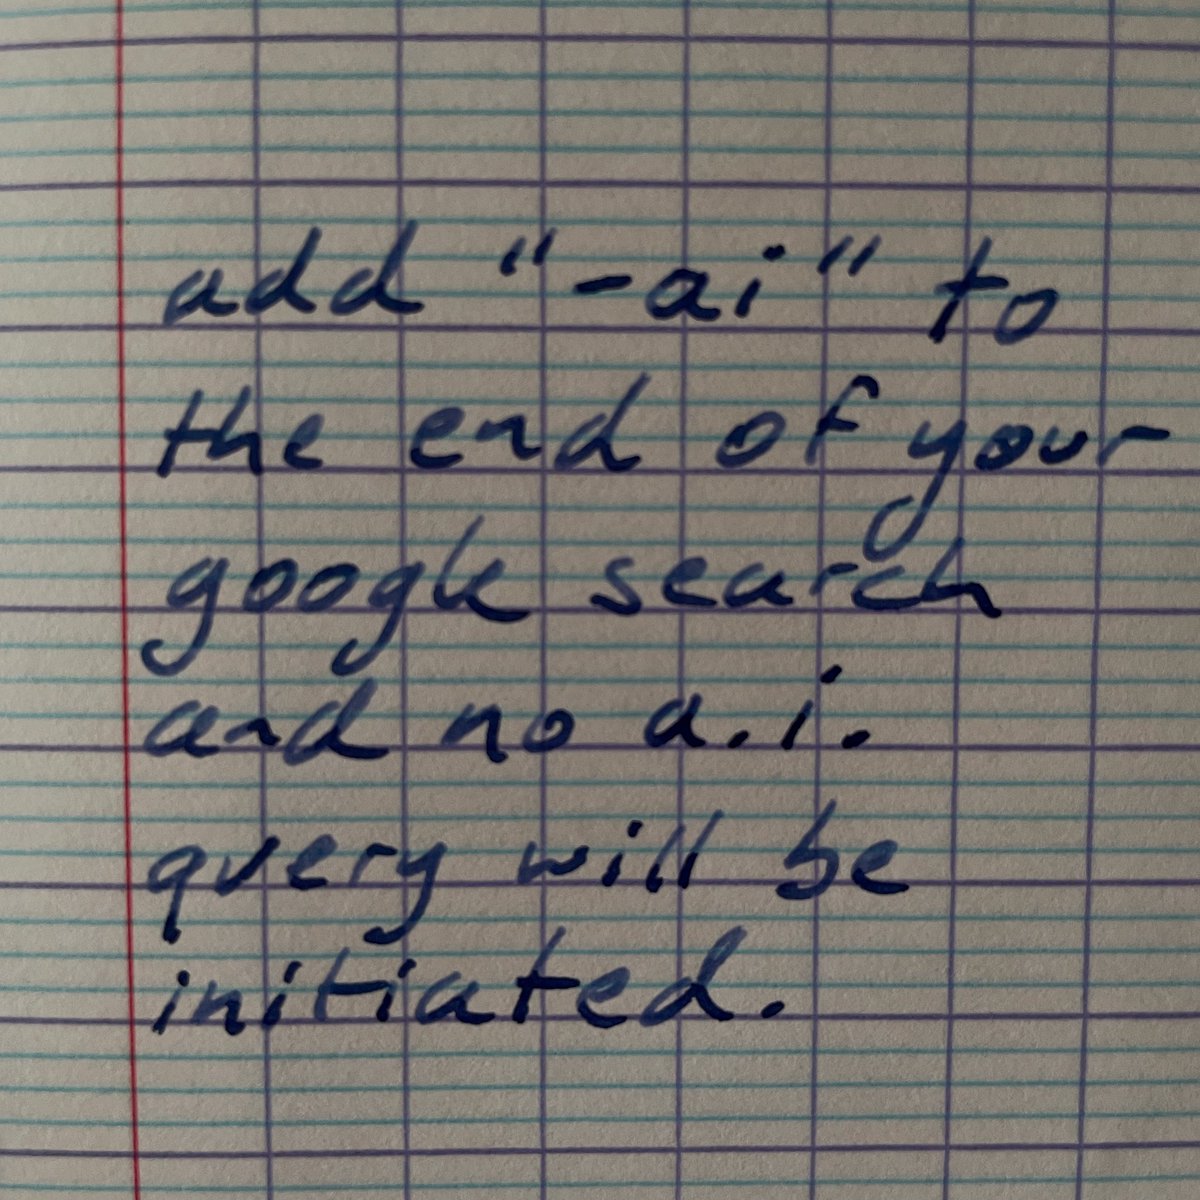 add "-ai" to
the end of your
google search
and no a.i.
query will be
initiated.